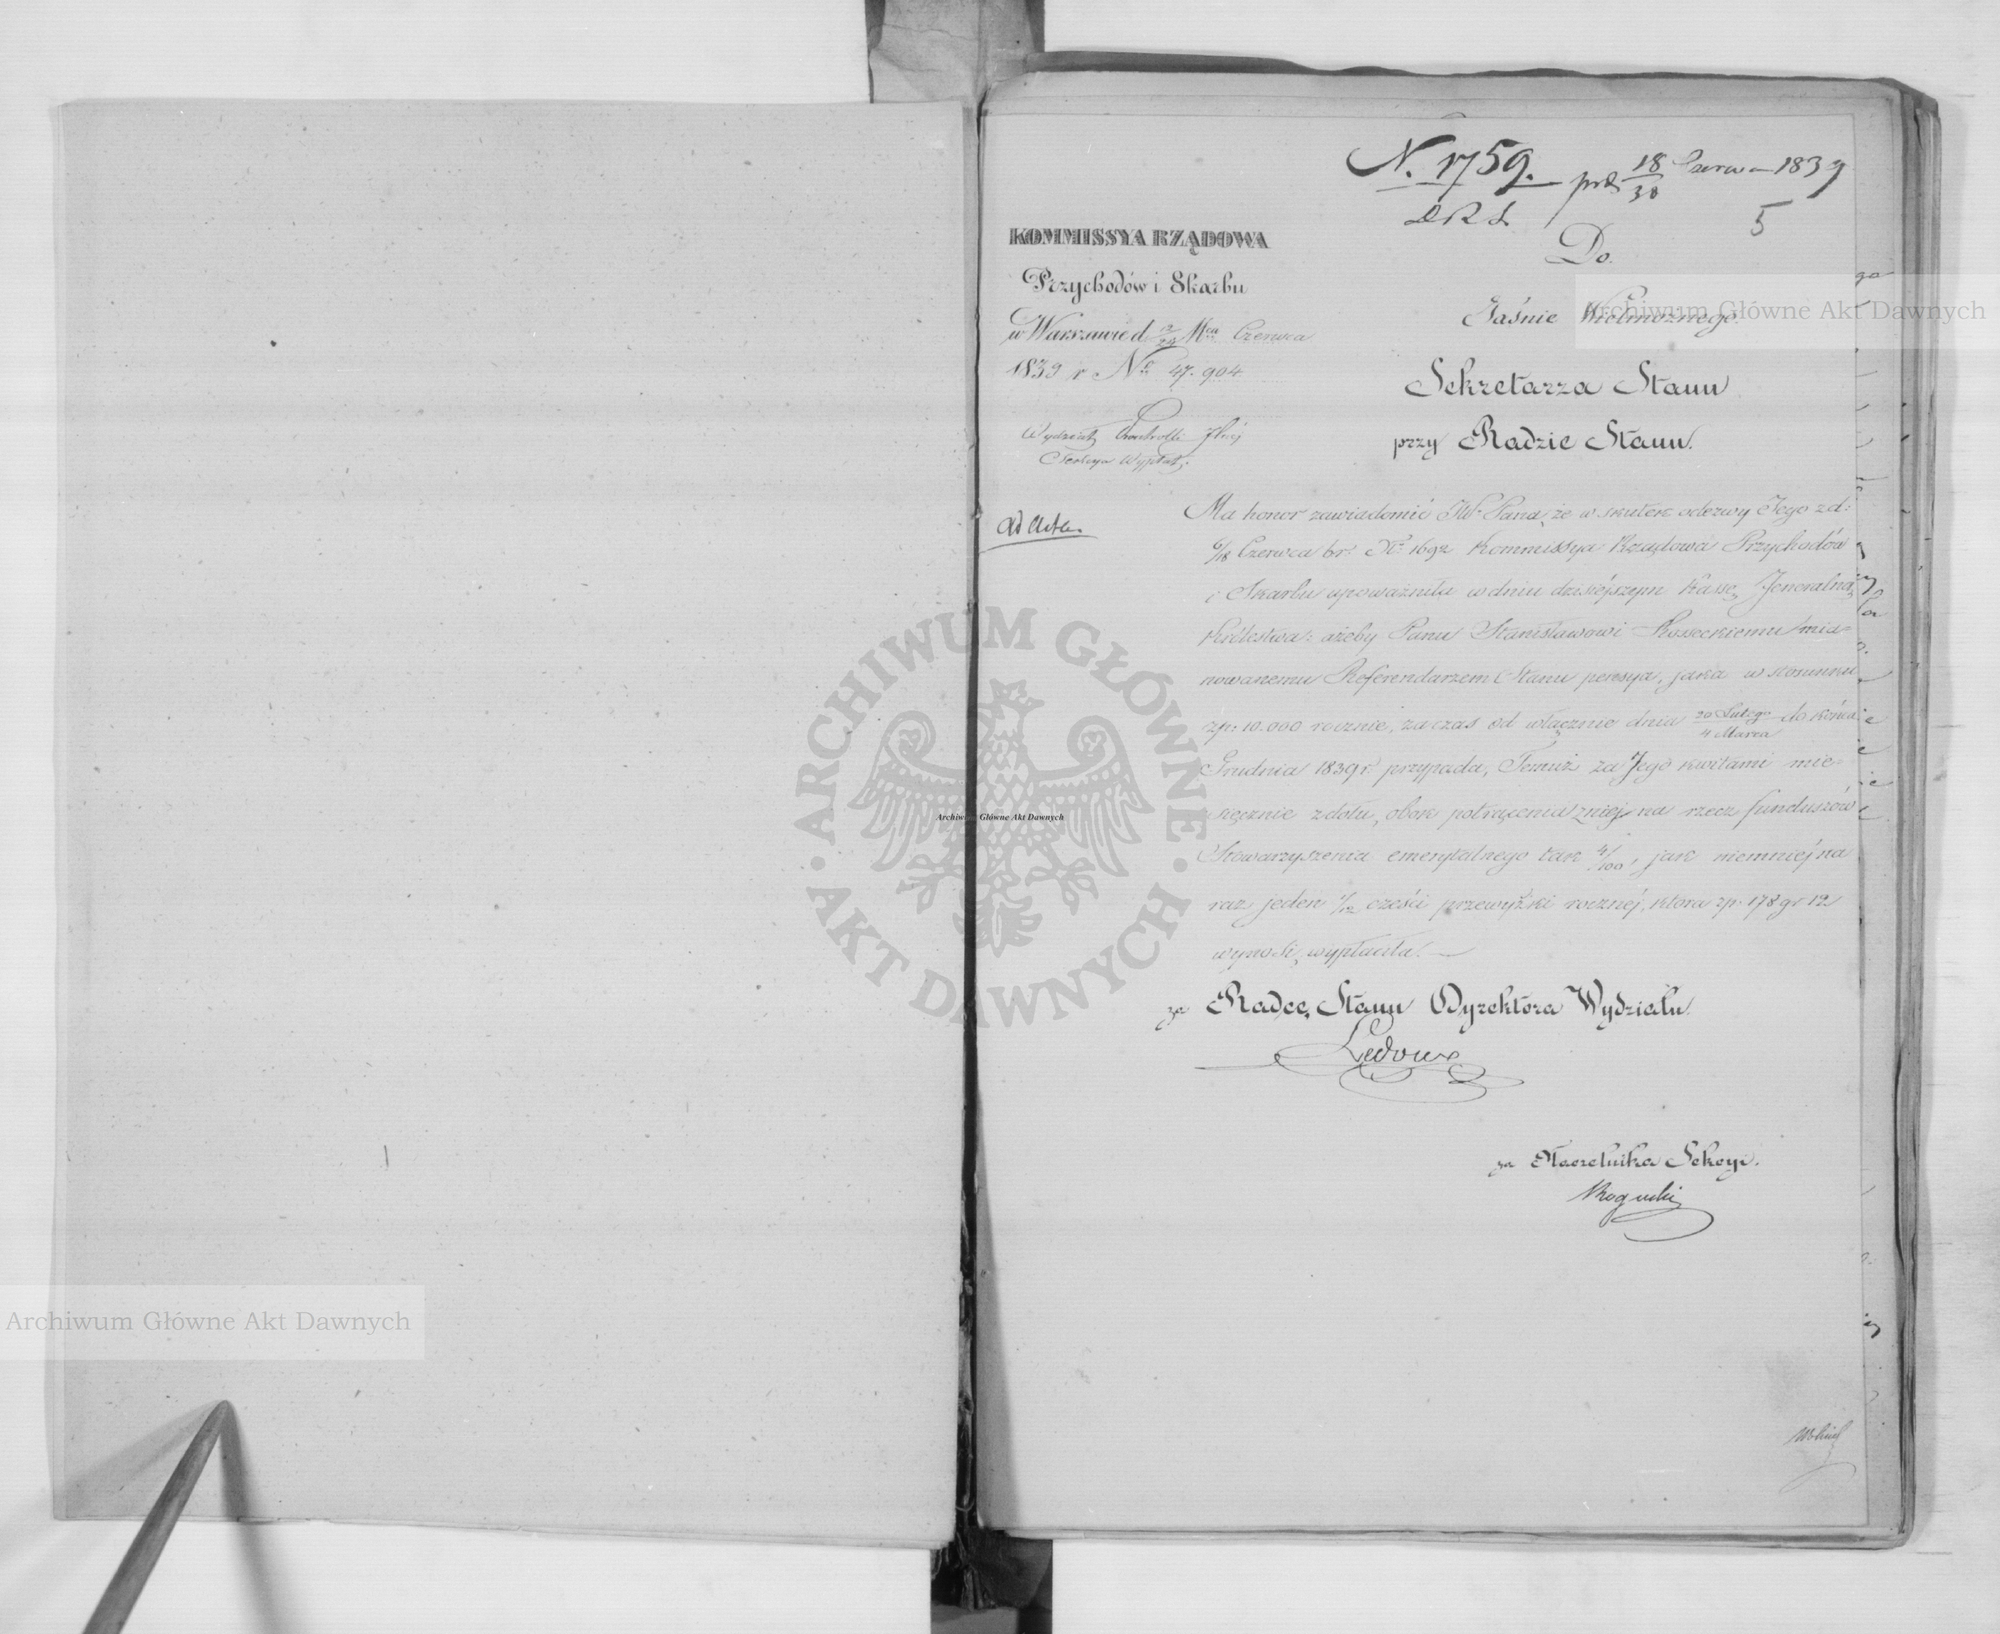 N. 1759. prd 18/30 Czerwca 1839
5
KOMMISSYA RZĄDOWA
Przychodów i Skarbu
w Warszawie d 17/29 Mca Czerwca
1839 r No 47.904
Wydział Kontrolli Jlnéj
Sekcya Wypłat.
Ad Acta
Do
Jaśnie Wielmożnego
Sekretarza Stanu
przy Radzie Stanu.
Ma honor zawiadomić JW. Pana, że w skutek odezwy Jego z d:
6/18 Czerwca br: No 1692 Kommissya Rządowa Przychodów
i Skarbu upoważniła w dniu dzisiéjszym Kassę Jeneralną
Królestwa: ażeby Panu Stanisławowi Kosseckiemu mia=
nowanemu Referendarzem Stanu pensya, jaka w stosunku
zp: 10.000 rocznie, za czas od włącznie dnia 20 Lutego/4 Marca do końca
Grudnia 1839 r. przypada, Temuż za Jego kwitami mie=
sięcznie z dołu, obok potrącenia z niéj na rzecz funduszów
Stowarzyszenia emerytalnego tak 4/100, jak niemniéj na
raz jeden 1/12 cześci przewyżki rocznéj, która zp. 178 gr 12
wynosi, wypłaciła. —
za Radcę Stanu Dyrektora Wydziału.
za Naczelnika Sekcyi.
Archiwum Główne Akt Dawnych
ARCHIWUM GŁÓWNE · AKT DAWNYCH ·
Archiwum Główne Akt Dawnych
Archiwum Główne Akt Dawnych